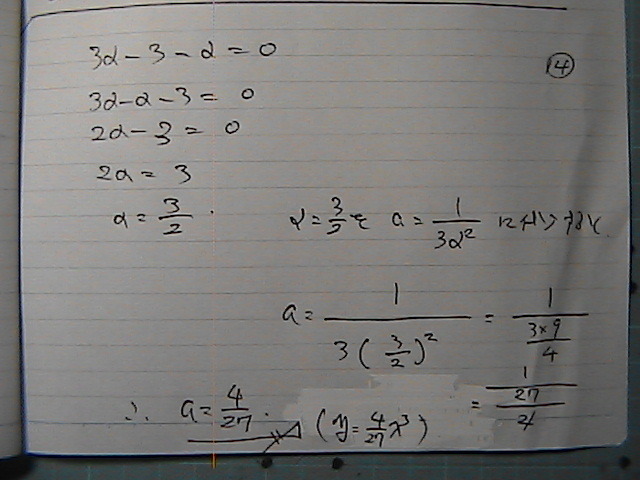 3α - 3 - α = 0
⑭
3α - α - 3 = 0
2α - 3 = 0
2α = 3
α = 3/2 .
α = 3/2 を a = 1/(3α²) に代入すると
a = 1/(3(3/2)²) = 1/((3×9)/4)
= 1/(27/4)
∴ a = 4/27 . (y = 4/27 x³)